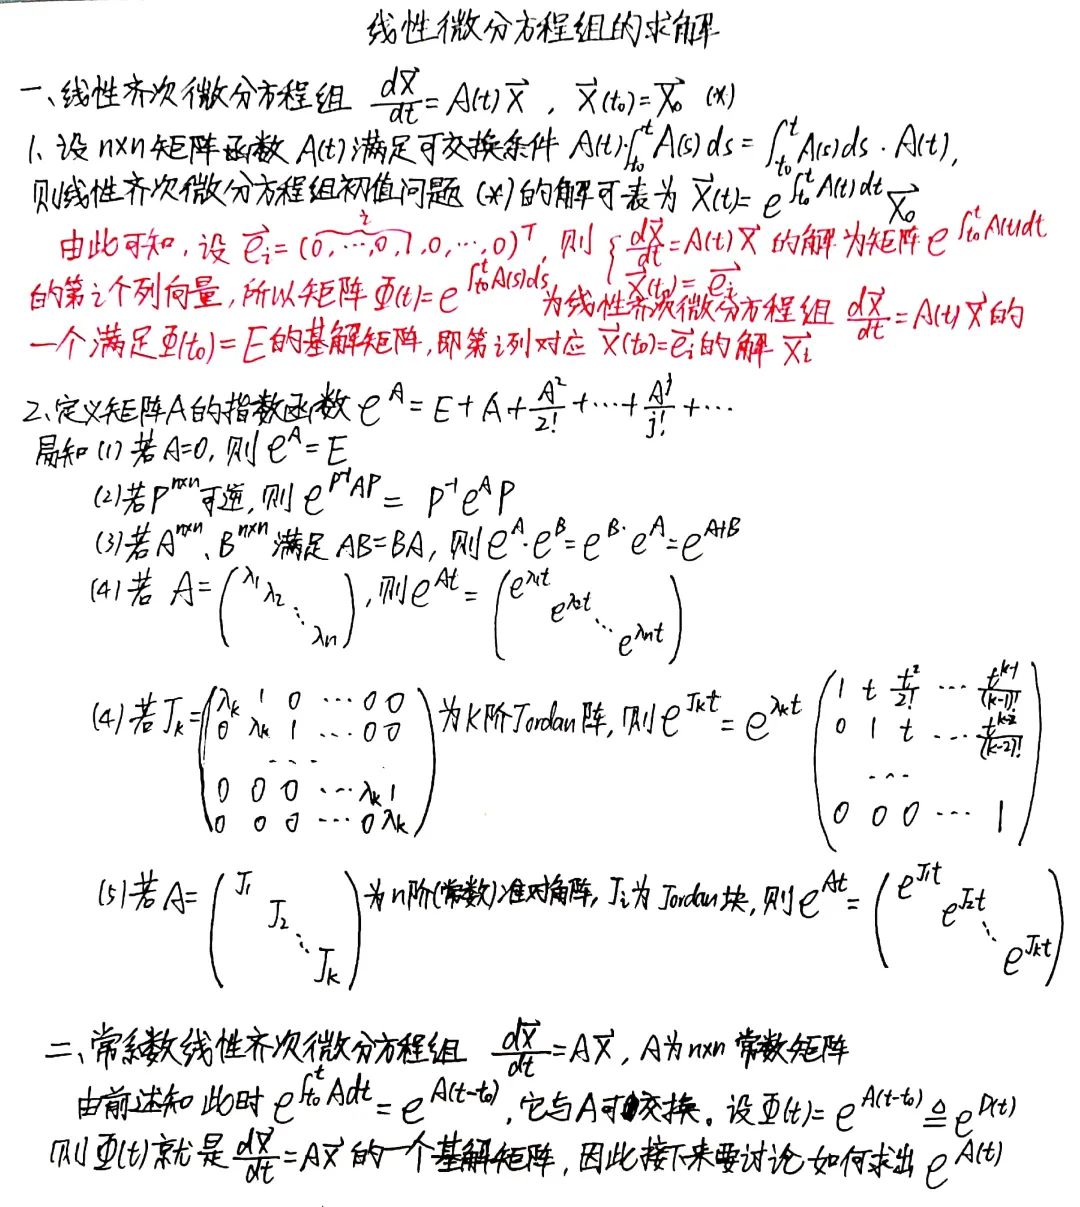 线性微分方程组的求解
一、线性齐次微分方程组 dX⃗/dt = A(t)X⃗ , X⃗(t₀)=X⃗₀ (*)
1、设 n×n 矩阵函数 A(t) 满足可交换条件 A(t)·∫_{t₀}^{t} A(s) ds = ∫_{t₀}^{t} A(s) ds · A(t),
则线性齐次微分方程组初值问题 (*) 的解可表为 X⃗(t) = e^{∫_{t₀}^{t} A(t) dt} X⃗₀
由此可知, 设 e⃗ᵢ = (0, ⋯, 0, 1, 0, ⋯, 0)^T, 则 { dX⃗/dt = A(t)X⃗ 的解为矩阵 e^{∫_{t₀}^{t} A(t)dt}
i
X⃗(t₀) = e⃗ᵢ
的第i个列向量, 所以矩阵 Φ(t) = e^{∫_{t₀}^{t} A(s)ds} 为线性齐次微分方程组 dX⃗/dt = A(t)X⃗ 的
一个满足Φ(t₀) = E的基解矩阵, 即第i列对应 X⃗(t₀)=e⃗ᵢ的解 X⃗ᵢ
2、定义矩阵A的指数函数 e^A = E + A + A²/2! + ⋯ + A^j/j! + ⋯
易知 (1) 若 A=0, 则 e^A = E
(2) 若 P^{n×n} 可逆, 则 e^{P⁻¹AP} = P⁻¹e^A P
(3) 若 A^{n×n}、B^{n×n} 满足 AB=BA, 则 e^A·e^B = e^B·e^A = e^{A+B}
(4) 若 A = (λ₁ λ₂ ⋱ λₙ), 则 e^{At} = (e^{λ₁t} e^{λ₂t} ⋱ e^{λₙt})
(4) 若 J_k = (λ_k 1 0 ⋯ 0 0 为K阶Jordan阵, 则 e^{J_k t} = e^{λ_k t} (1 t t²/2! ⋯ t^{k-1}/(k-1)!
0 λ_k 1 ⋯ 0 0 0 1 t ⋯ t^{k-2}/(k-2)!
⋯⋯ ⋯
0 0 0 ⋯ λ_k 1
0 0 0 ⋯ 0 λ_k) 0 0 0 ⋯ 1)
(5) 若 A = (J₁ J₂ ⋱ J_k) 为n阶(常数)准对角阵, Jᵢ为 Jordan块, 则 e^{At} = (e^{J₁t} e^{J₂t} ⋱ e^{J_k t})
二、常系数线性齐次微分方程组 dX⃗/dt = AX⃗, A为n×n 常数矩阵
由前述知 此时 e^{∫_{t₀}^{t} Adt} = e^{A(t-t₀)}, 它与A可交换。设Φ(t) = e^{A(t-t₀)} ≜ e^{D(t)}
则Φ(t)就是 dX⃗/dt = AX⃗ 的一个基解矩阵, 因此接下来要讨论如何求出 e^{A(t)}